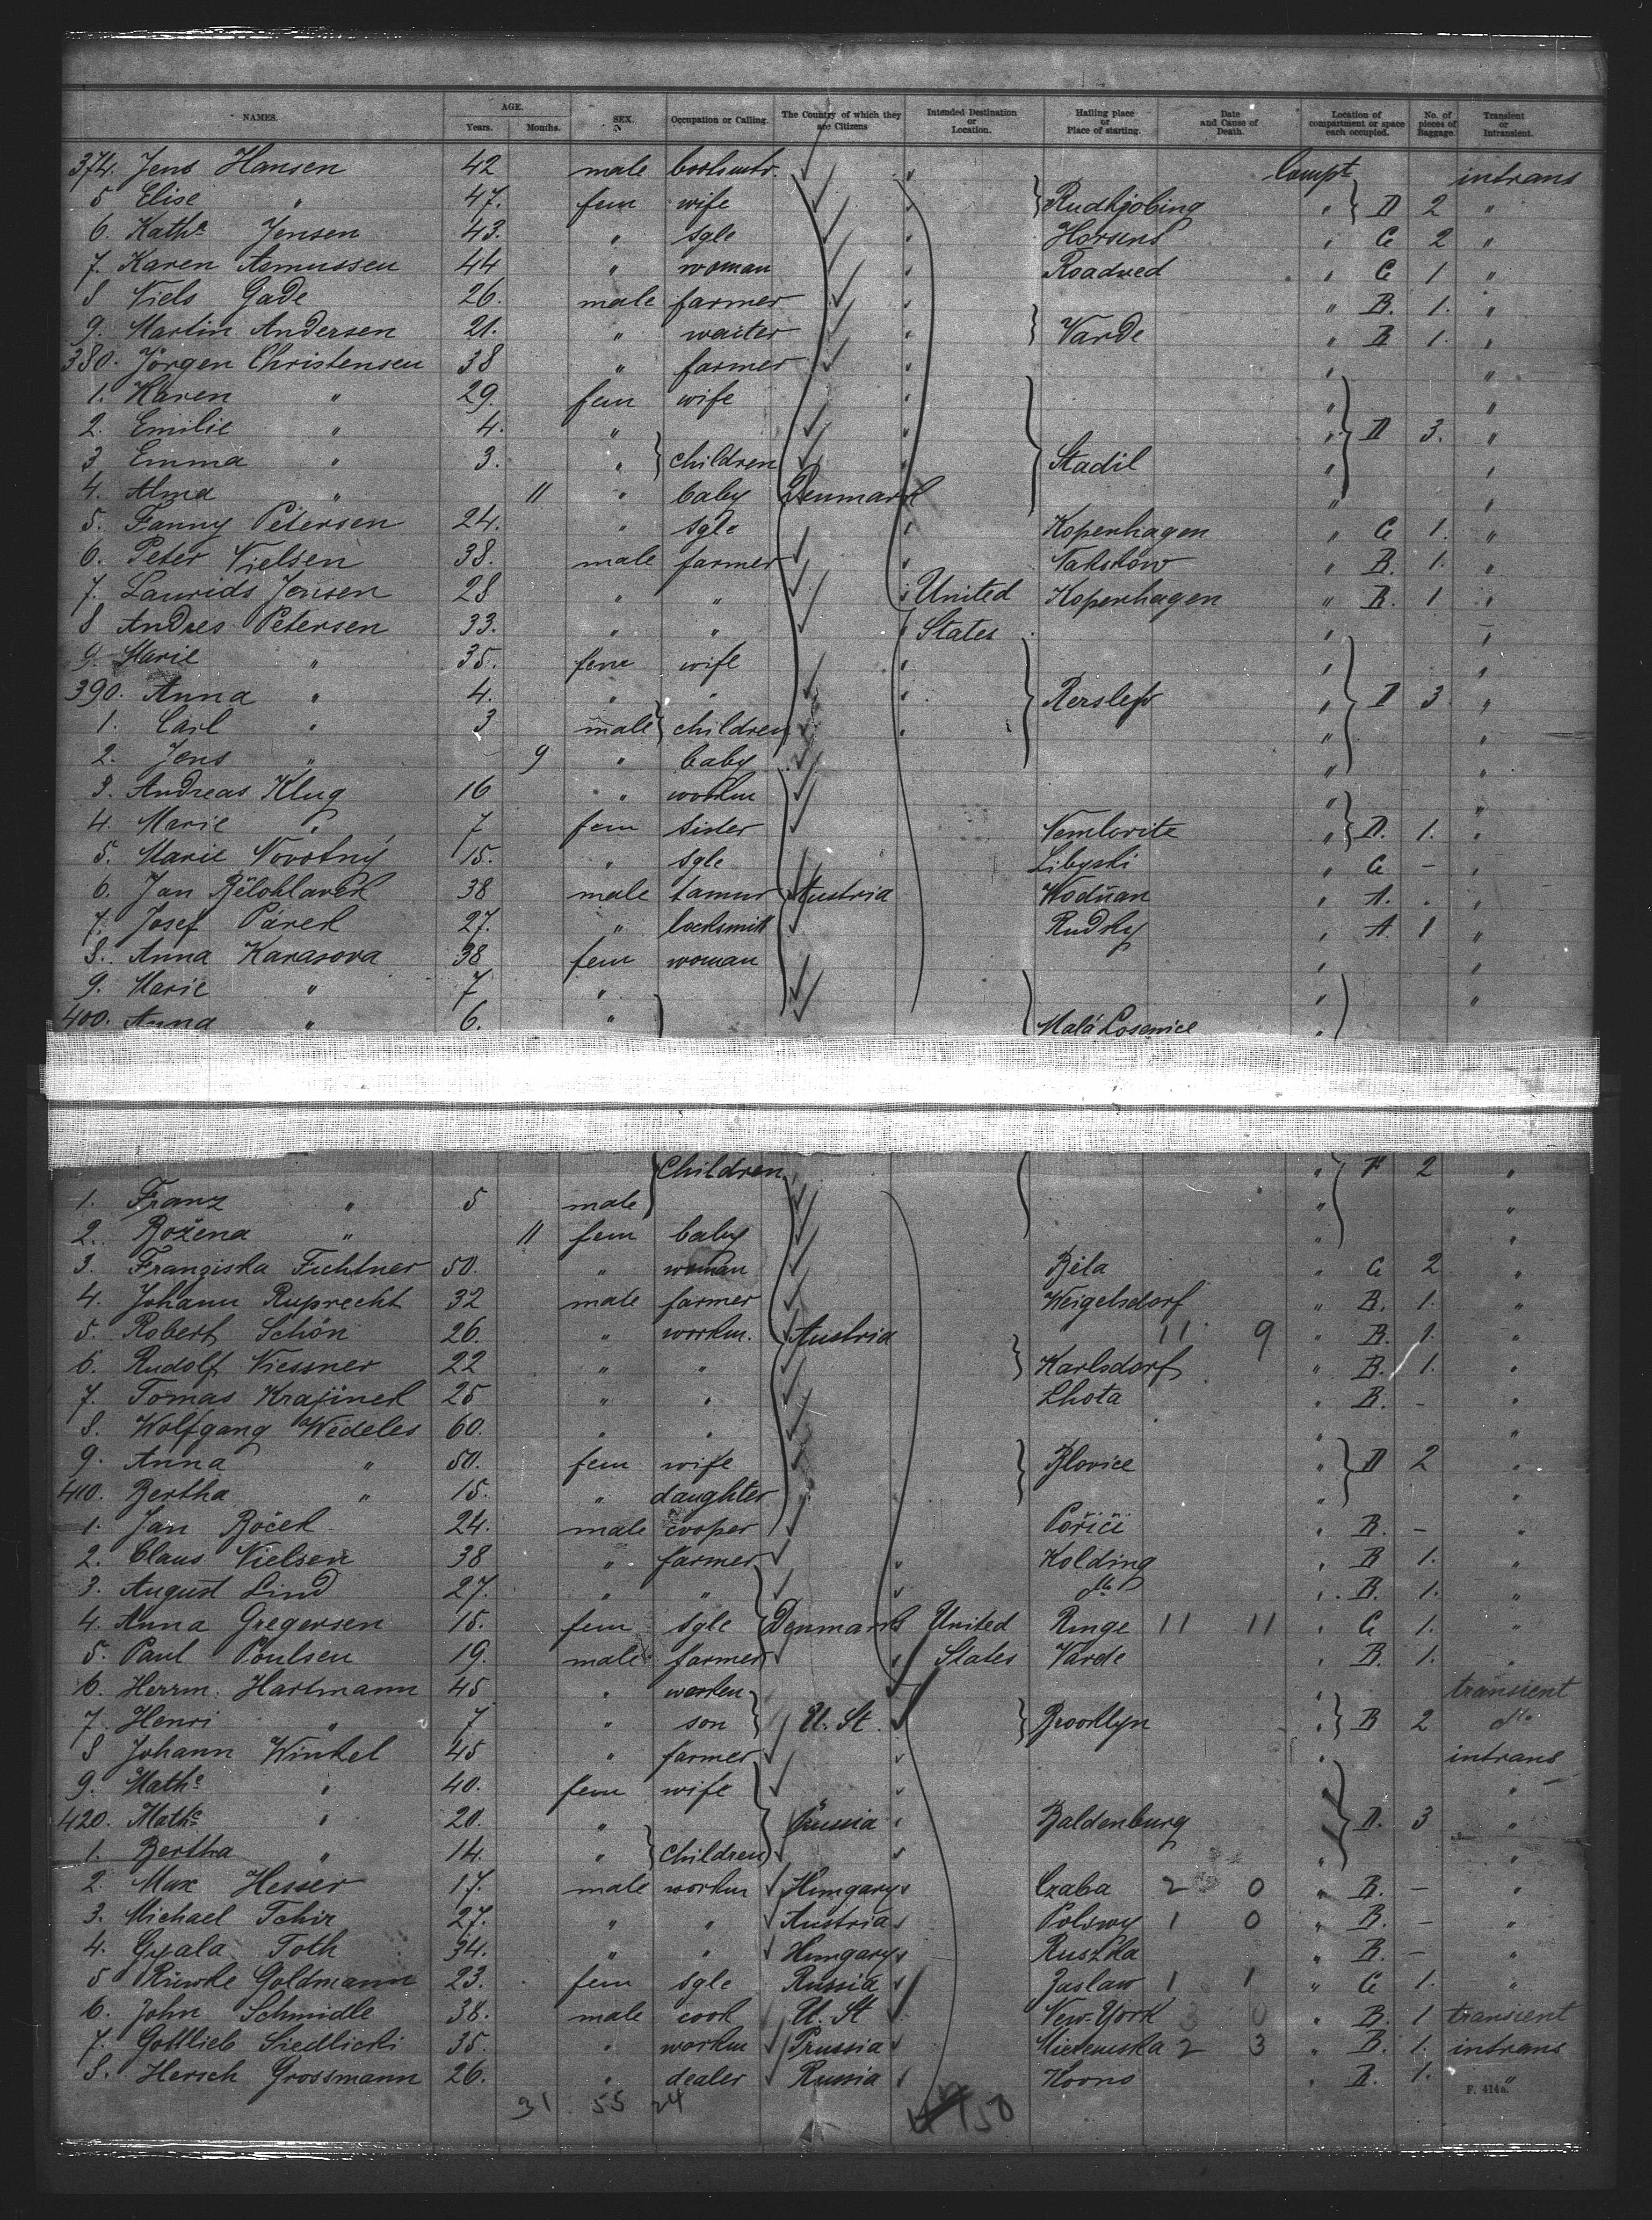 NAMES. AGE. Years. Months. SEX. Occupation or Calling. The Country of which they are Citizens Intended Destination or Location. Hailing place or Place of starting. Date and Cause of Death. Location of compartment or space each occupied. No. of pieces of Baggage. Transient or Intransient.
374. Jens Hansen 42 male Compt intrans
5 Elise " 47. fem wife Rudkjobing " D 2 "
6. Kathe Jensen 43. " sgle Horsens " C 2 "
7. Karen Asmussen 44 " woman Roadved " C 1 "
8 Niels Gade 26. male farmer " B. 1. "
9. Martin Andersen 21. " waiter Varde " B 1. "
380. Jörgen Christensen 38 " farmer " "
1. Karen " 29. fem wife " "
2. Emilie " 4. " " D 3. "
3 Emma " 3. " children Stadil " "
4. Alma " 11 " baby Denmark " "
5. Fanny Petersen 24. " sgle Kopenhagen " C 1. "
6. Peter Nielsen 38. male farmer Nakskow " B. 1. "
7. Laurids Jensen 28 " " United Kopenhagen " B. 1 "
8 Andres Petersen 33. " " States " "
9. Marie " 35. fem wife " "
390. Anna " 4. " " Rerslep " D 3 "
1. Carl " 3 male children " "
2. Jens " 9 " baby " "
3. Andreas Klug 16 " workm " "
4. Marie " 7 fem sister " D. 1. "
5. Marie Novotný 15. " sgle Libyski " C - "
6. Jan Bělohlavek 38 male Austria Wodňan " A. . "
7. Josef Párek 27. " locksmit " A. 1 "
8. Anna Karasova 38 fem woman " "
9. Marie " 7 " " "
400. Anna " 6. " Malá Losenice "
Children " 2 "
1. Franz " 5 male " "
2. Božena " 11 fem baby " "
3. Franziska Fichtner 50. " woman Běla " C 2 "
4. Johann Ruprecht 32 male farmer Weigelsdorf " B. 1. "
5. Robert Schön 26. " workm. Austria 11 9 " B. 1. "
6. Rudolf Niessner 22 " " Karlsdorf " B. 1. "
7. Tomas Krajinek 25 " " Lhota " B. - "
8. Wolfgang Wedeles 60. " " " "
9. Anna " 50. fem wife Blovice " D 2 "
410. Bertha " 15. " daughter " "
1. Jan Boček 24. male cooper Pořiči " B. - "
2. Claus Nielsen 38 " farmer Kolding " B 1. "
3. August Lind 27. " " do " B. 1. "
4. Anna Gregersen 15. fem sgle Denmark United Ringe 11 11 " C 1. "
5. Paul Poulsen 19. male farmer States Varde " B. 1. "
6. Herrm. Hartmann 45 " workm " transient
7. Henri " 7 " son U. St. Brooklyn " B 2 do
8 Johann Winkel 45 " farmer " intrans
9. Mathe " 40. fem wife " "
420. Mathe " 20. " Baldenburg " D. 3 "
1. Bertha " 14. " Children " "
2. Max Hesser 17. male workm Hungary Czaba 2 0 " B. - "
3. Michael Tchir 27. " " Austria 1 0 " B. - "
4. Gyala Toth 34. " " Hungary Ruszka " B. - "
5 Riwke Goldmann 23. fem sgle Russia Zaslaw 1 1 " C 1. "
6. John Schmidle 38. male cook U. St New-York 3 0 " B. 1 transient
7. Gottlieb Siedlicki 35. " workm Prussia 2 3 " B. 1. intrans
8. Hersch Grossmann 26. " dealer Russia Kovno " B. 1. "
F. 414a.
31 55 24 150